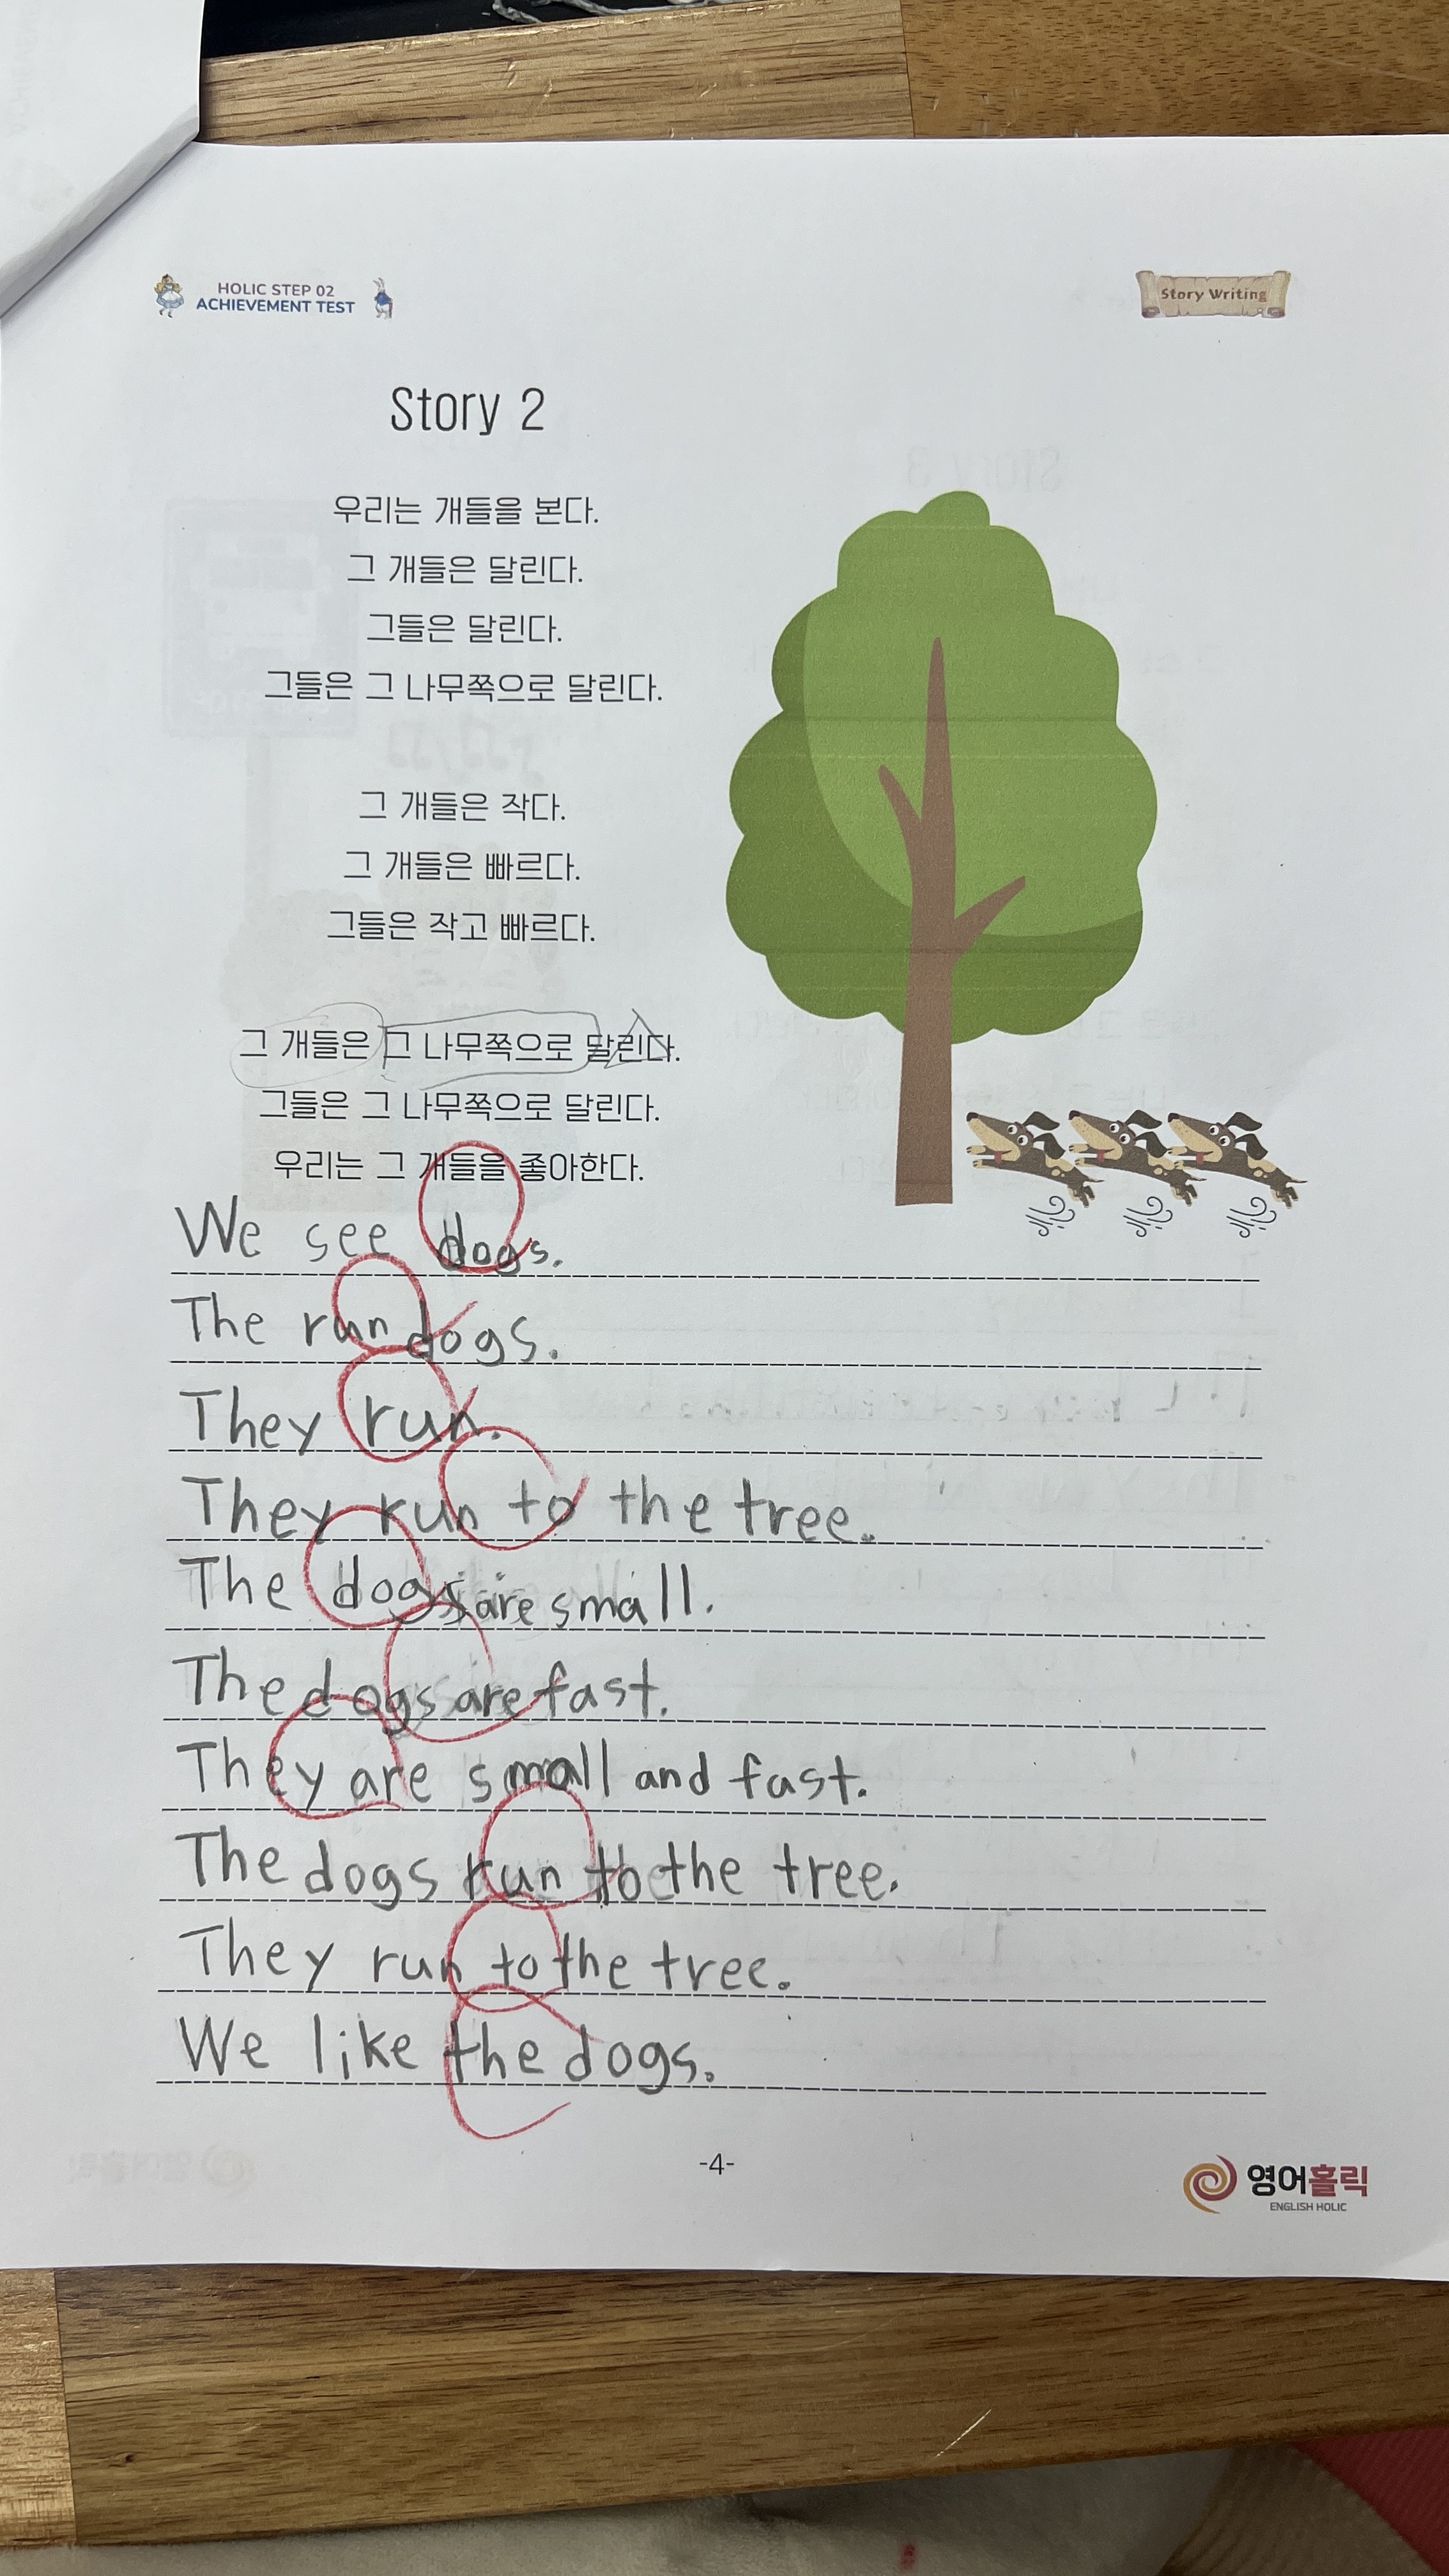 HOLIC STEP 02
ACHIEVEMENT TEST
Story Writing
Story 2
우리는 개들을 본다.
그 개들은 달린다.
그들은 달린다.
그들은 그 나무쪽으로 달린다.
그 개들은 작다.
그 개들은 빠르다.
그들은 작고 빠르다.
그 개들은 그 나무쪽으로 달린다.
그들은 그 나무쪽으로 달린다.
우리는 그 개들을 좋아한다.
We see dogs.
The run dogs.
They run.
They run to the tree.
The dogs are small.
The dogs are fast.
They are small and fast.
The dogs run to the tree.
They run to the tree.
We like the dogs.
-4-
영어홀릭
ENGLISH HOLIC